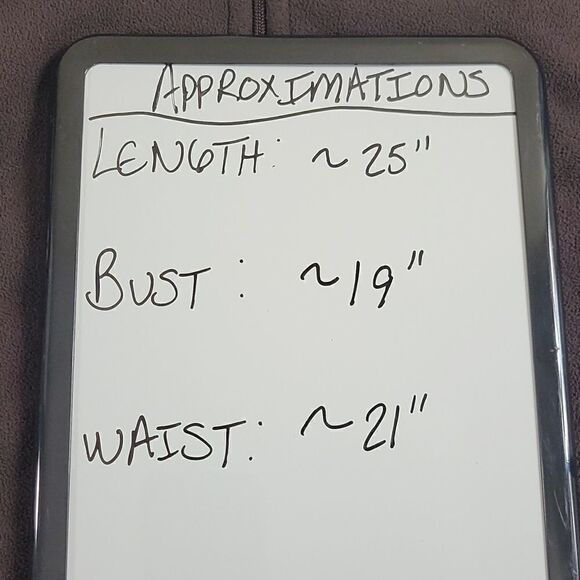 APPROXIMATIONS
LENGTH: ~25"
BUST: ~19"
WAIST: ~21"